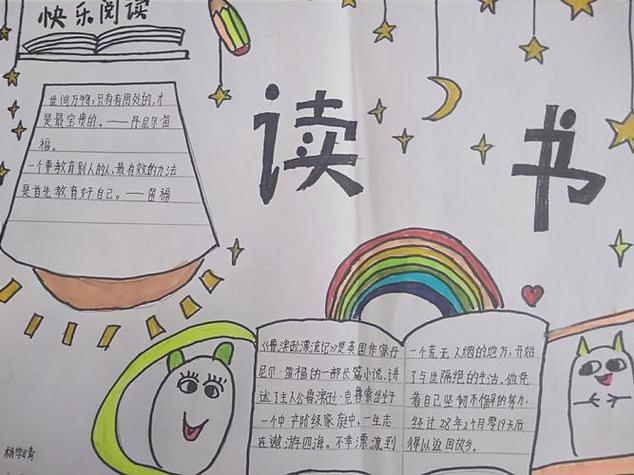 快乐阅读
读书
世间万物，只有有用处的，才
是最宝贵的。——丹尼尔·笛
福。
一个要教育别人的人，最有效的办法
是首先教育好自己。——笛福
《鲁滨逊漂流记》是英国作家丹
尼尔·笛福的一部长篇小说，讲
述了主人公鲁滨逊·克鲁索出生于
一个中产阶级家庭中，一生志
在遨游四海。不幸漂流到
一个荒无人烟的地方，开始
了与世隔绝的生活。他凭
着自己坚韧不懈的努力，
经过28年2个月零19天后
得以返回故乡。